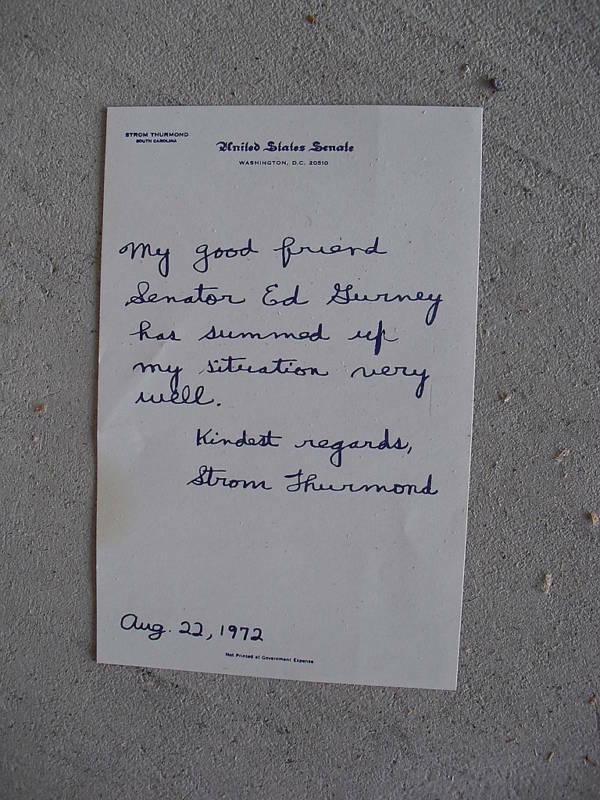 STROM THURMOND
SOUTH CAROLINA
United States Senate
WASHINGTON, D.C. 20510
My good friend
Senator Ed Gurney
has summed up
my situation very
well.
Kindest regards,
Strom Thurmond
Aug. 22, 1972
Not Printed at Government Expense